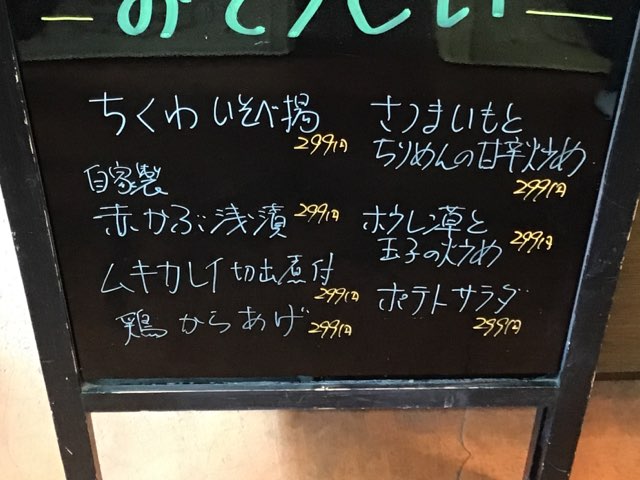 おそうじい
ちくわいそべ揚
299円
自家製
赤かぶ浅漬
299円
ムキカレイ切出煮付
299円
鶏からあげ
299円
さつまいもと
ちりめんの甘辛炒め
299円
ホウレン草と
玉子の炒め
299円
ポテトサラダ
299円